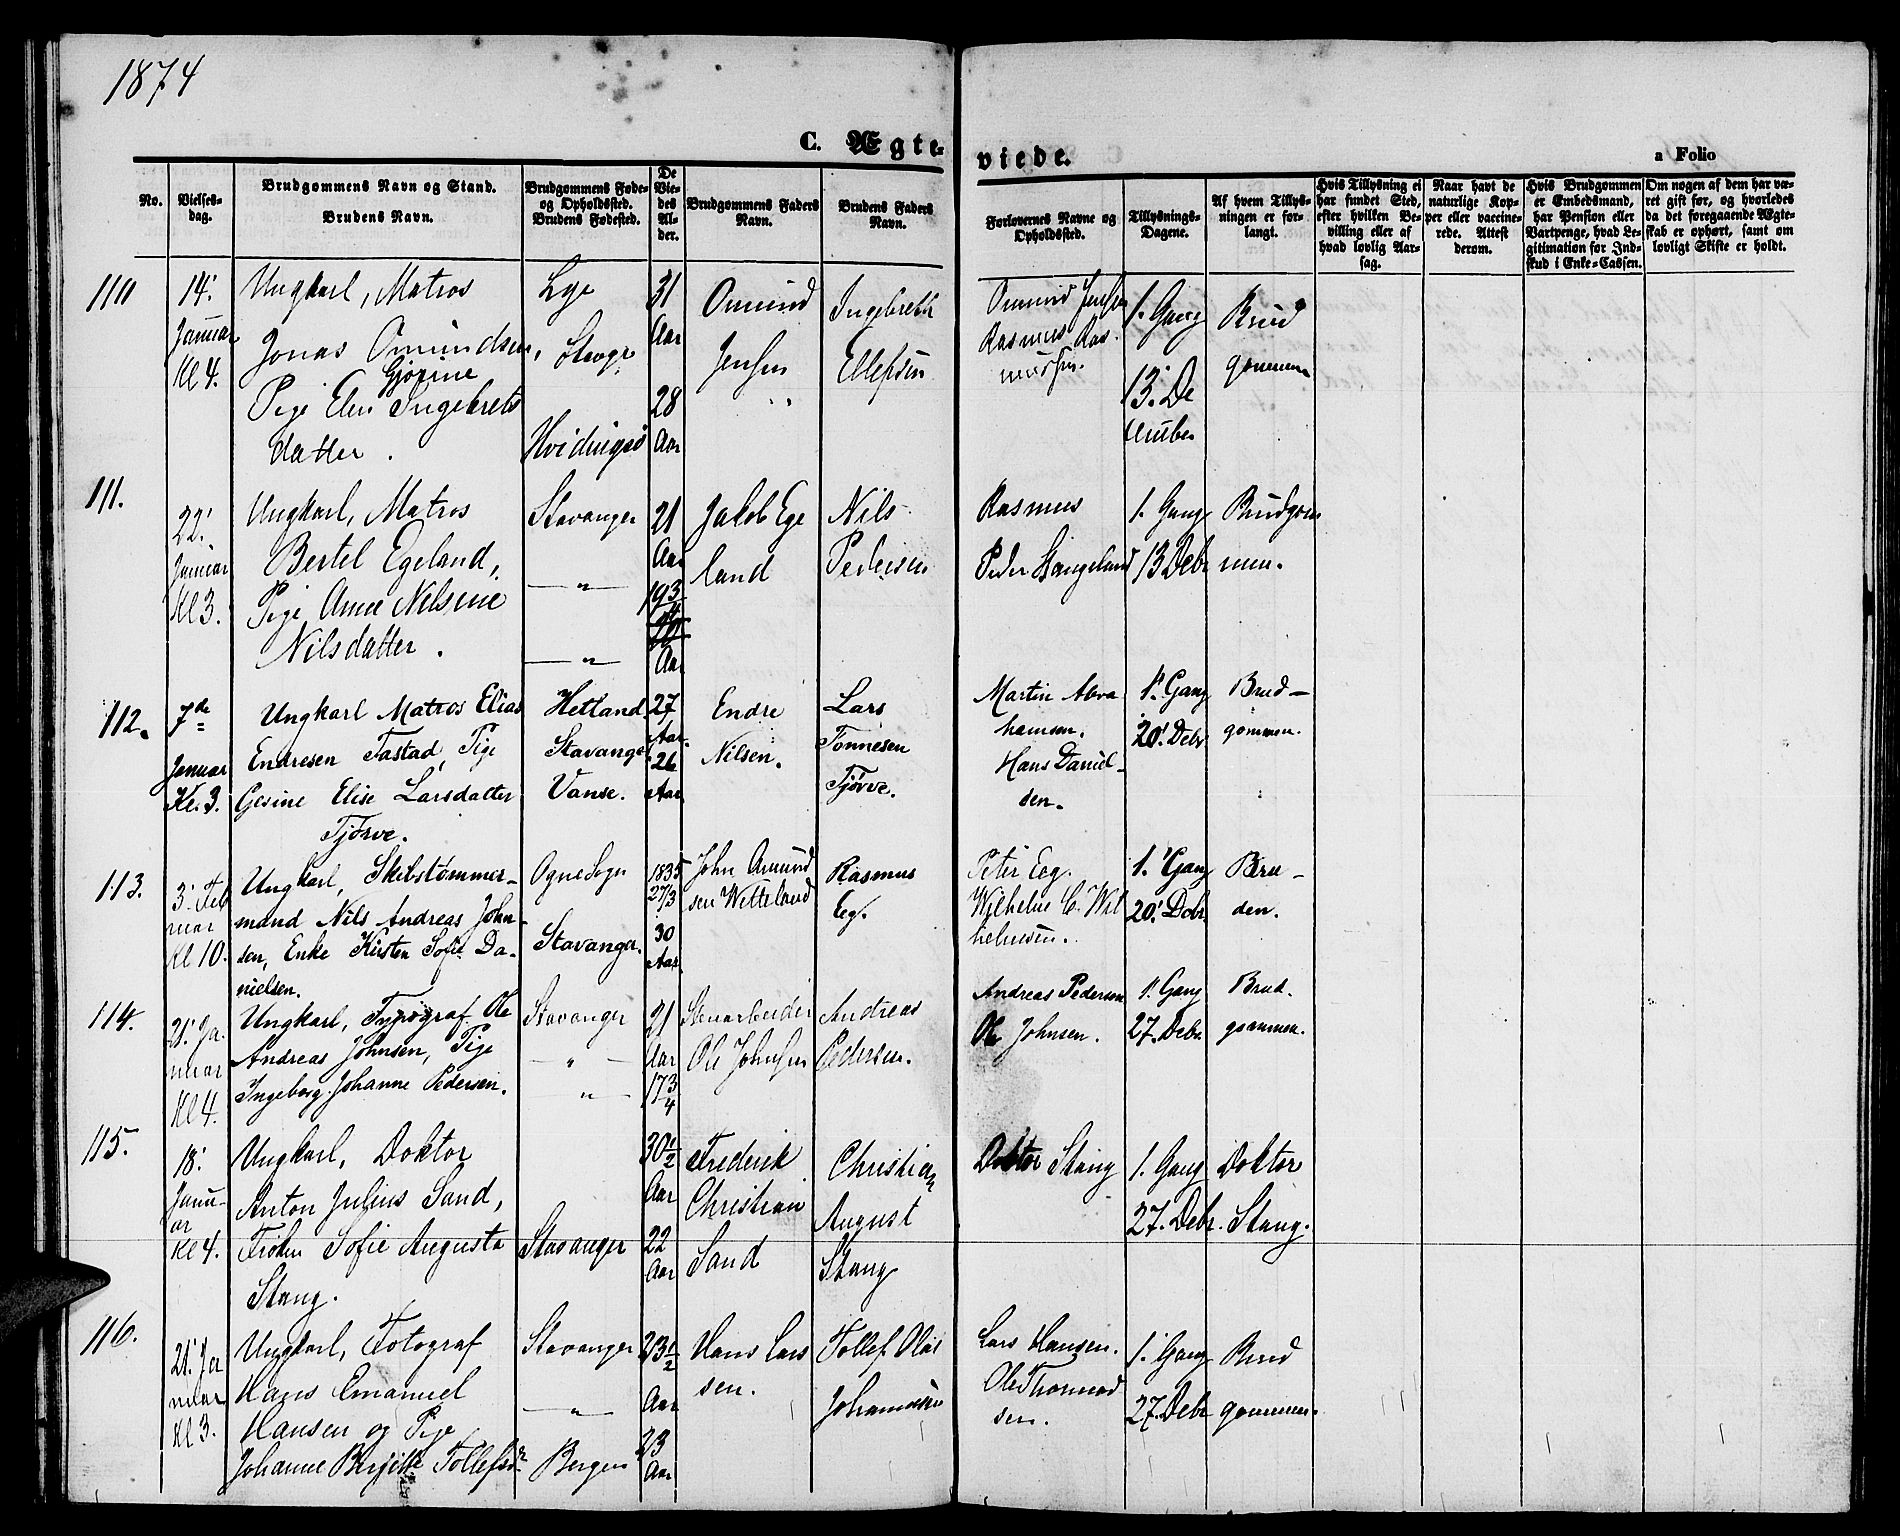 1874
C. Ægte-
viede.
a Folio
No.
Vielses-
dag.
Brudgommens Navn og Stand.
Brudens Navn.
Brudgommens Føde-
og Opholdssted.
Brudens Fødested.
De
Vie-
des
Al-
der.
Brudgommens Faders
Navn.
Brudens Faders
Navn.
Forlovernes Navne og
Opholdssted.
Tillysnings-
Dagene.
Af hvem Tillys-
ningen er for-
langt.
Hvis Tillysning ei
har fundet Sted,
efter hvilken Be-
villing eller af
hvad lovlig Aar-
sag.
Naar havt de
naturlige Kop-
per eller vaccine-
rede. Attest
derom.
Hvis Brudgommen
er Embedsmand,
har Pension eller
Vartpenge, hvad Le-
gitimation for Ind-
skud i Enke-Cassen.
Om nogen af dem har væ-
ret gift før, og hvorledes
da det foregaaende Ægte-
skab er ophørt, samt om
lovligt Skifte er holdt.
110
14.
Januar
Kl 4.
Ungkarl, Matros
Jonas Omundsen,
Gjørine
Pige Elen Ingebrets
datter.
Lye
Stavgr
Hvidingsø
31
Aar
28
Aar
Omund
Jensen
Ingebreth
Ellefsen
Omund Jensen
Rasmus Ras
mussen.
1. Gang
13. De
cember
Brud
gommen
111.
22.
Januar
Kl 3.
Ungkarl, Matros
Bertel Egeland,
Pige Anne Nilsine
Nilsdatter.
Stavanger
—"—
—"—
21
Aar
19 3/4
Aar
Jakob Ege
land
Nils
Pedersen
Rasmus
Peder Stangeland
1. Gang
13 Debr
Brudgom
men.
112.
7de
Januar
Kl. 3.
Ungkarl Matros Elias
Endresen Tastad, Pige
Gesine Elise Larsdatter
Tjørve.
Hetland
Stavanger
Vanse.
27
Aar.
26
Aar
Endre
Nilsen.
Lars
Tønnesen
Tjörve.
Martin Abra
hamsen.
Hans Daniel-
sen.
1. Gang
20. Debr
Brud-
gommen.
113.
3. Feb
ruar
Kl 10.
Ungkarl, Skibstømmer-
mand Nils Andreas John-
sen, Enke Kirsten Sofie Da-
nielsen.
Ogne Sogn
Stavanger.
1835
27/3
30
Aar
John Amund
sen Witteland
Rasmus
Eeg.
Peter Eeg.
Wilhelm C. Wil
helmsen.
1. Gang
20. Debr
Bru-
den.
114.
21. Ja
nuar
Kl 4.
Ungkarl, Typograf Ole
Andreas Johnsen, Pige
Ingeborg Johanne Pedersen.
Stavanger
—"—
—"—
21
Aar
17 3/4
Stenarbeider
Ole Johnsen
Andreas
Pedersen.
Andreas Pedersen
Ole Johnsen.
1. Gang
27. Debr.
Brud.
gommen.
115.
18.
Janu-
ar
Kl 4.
Ungkarl, Doktor
Anton Julius Sand,
Frøken Sofie Augusta
Stang.
Stavanger
30 1/2
Aar
22
Aar
Frederik
Christian
Sand
Christian
August
Stang
Doktor Stang
1. Gang
27. Debr.
Doktor
Stang.
116.
21. Ja
nuar
Kl 3.
Ungkarl, Fotograf
Hans Emanuel
Hansen og Pige
Johanne Berjitte Tollefsdr
Stavanger
—"—
Bergen
23 1/2
Aar
23
Aar
Hans Lars
sen.
Tollef Olai
Johannesen
Lars Hansen.
Ole Thormod
sen.
1. Gang
27. Debr
Brud
gommen.